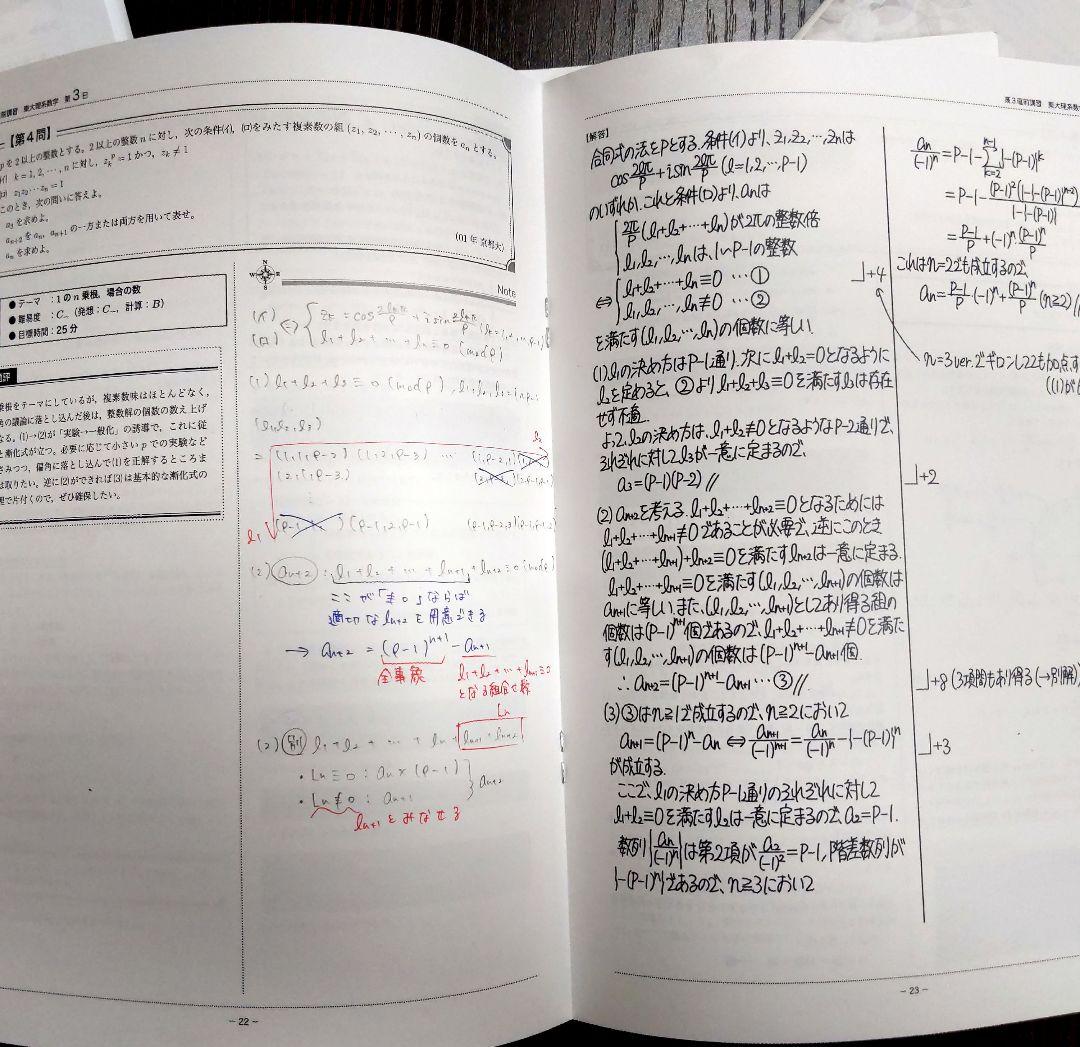 直前講習 東大理系数学 第3日
【第4問】
pを2以上の整数とする。2以上の整数nに対し、次の条件(イ), (ロ)をみたす複素数の組(z₁, z₂, ⋯, zₙ)の個数をaₙとする。
k=1, 2, ⋯, nに対し, zₖᵖ=1かつ, zₖ≠1
z₁z₂⋯zₙ=1
このとき, 次の問いに答えよ。
a₃を求めよ。
aₙ₊₂をaₙ, aₙ₊₁の一方または両方を用いて表せ。
aₙを求めよ。
(01年 京都大)
●テーマ:1のn乗根, 場合の数
●難易度:C₋(発想:C₋, 計算:B)
●目標時間:25分
乗根をテーマにしているが, 複素数味はほとんどなく,
角の議論に落とし込んだ後は, 整数解の個数の数え上げ
なる。(1)→(2)が「実験→一般化」の誘導で, これに従
と漸化式が立つ。必要に応じて小さいpでの実験など
さみつつ, 偏角に落とし込んで(1)を正解するところま
は取りたい。逆に(2)ができれば(3)は基本的な漸化式の
理で片付くので, ぜひ確保したい。
N
W E
S
Note
(イ)
(ロ) ⇔ { zₖ = cos 2lₖπ/p + i sin 2lₖπ/p
l₁ + l₂ + ⋯ + lₙ ≡ 0 (mod p)
(1) l₁ + l₂ + l₃ ≡ 0 (mod p),
(l₁, l₂, l₃)
l₂
= (1, 1, p-2) (1, 2, p-3) ⋯ (1, p-2, 1)
(2, 1, p-3)
⋮
(p-1, 2, p-1)
l₁
(2) aₙ₊₂ : l₁ + l₂ + ⋯ + lₙ₊₁ + lₙ₊₂ ≡ 0 (mod p)
ここが「≢0」ならば
適切なlₙ₊₂を用意できる
→ aₙ₊₂ = (p-1)ⁿ⁺¹ - aₙ₊₁
全事象
l₁ + l₂ + ⋯ + lₙ₊₁ ≡ 0
となる組合せ数
Lₙ
(2) 別 l₁ + l₂ + ⋯ + lₙ + lₙ₊₁ + lₙ₊₂
・Lₙ ≡ 0 : aₙ × (p-1)
・Lₙ ≢ 0 : aₙ₊₁ } aₙ₊₂
lₙ₊₁とみなせる
-22-
高3直前講習 東大理系数学
【解答】
合同式の法をPとする. 条件(イ)より, z₁, z₂, ⋯, zₙは
cos 2lπ/P + i sin 2lπ/P (l=1, 2, ⋯, P-1)
のいずれか. これと条件(ロ)より, aₙは
{ 2π/P (l₁+l₂+⋯+lₙ)が2πの整数倍
l₁, l₂, ⋯, lₙは, 1〜P-1の整数
⇔ { l₁+l₂+⋯+lₙ≡0 ⋯①
l₁, l₂, ⋯, lₙ≢0 ⋯②
を満たす(l₁, l₂, ⋯, lₙ)の個数に等しい.
(1) l₁の決め方はP-1通り. 次にl₁+l₂≡0となるように
l₂を定めると, ②よりl₁+l₂+l₃≡0を満たすl₃は存在
せず不適.
よって, l₂の決め方は, l₁+l₂≢0となるようなP-2通りで,
それぞれに対してl₃が一意に定まるので,
a₃=(P-1)(P-2) //
(2) aₙ₊₂を考える. l₁+l₂+⋯+lₙ₊₂≡0となるためには
l₁+l₂+⋯+lₙ₊₁≢0であることが必要で, 逆にこのとき
(l₁+l₂+⋯+lₙ₊₁)+lₙ₊₂≡0を満たすlₙ₊₂は一意に定まる.
l₁+l₂+⋯+lₙ₊₁≡0を満たす(l₁, l₂, ⋯, lₙ₊₁)の個数は
aₙ₊₁に等しい. また, (l₁, l₂, ⋯, lₙ₊₁)としてあり得る組の
個数は(P-1)ⁿ⁺¹個であるので, l₁+l₂+⋯+lₙ₊₁≢0を満た
す(l₁, l₂, ⋯, lₙ₊₁)の個数は(P-1)ⁿ⁺¹-aₙ₊₁個.
∴ aₙ₊₂=(P-1)ⁿ⁺¹-aₙ₊₁ ⋯③ //
(3) ③はn≧1で成立するので, n≧2において
aₙ₊₁=(P-1)ⁿ-aₙ ⇔ aₙ₊₁/(-1)ⁿ⁺¹ = aₙ/(-1)ⁿ - {-(P-1)}ⁿ
が成立する.
ここで, l₁の決め方P-1通りのそれぞれに対して
l₁+l₂≡0を満たすl₂は一意に定まるので, a₂=P-1.
数列{aₙ/(-1)ⁿ}は第2項がa₂/(-1)²=P-1, 階差数列が
{-(P-1)ⁿ}であるので, n≧3において
+4
+2
+8 (3項間もあり得る(→別解)
+3
aₙ/(-1)ⁿ = P-1-Σₖ₌₂ⁿ⁻¹{-(P-1)}ᵏ
= P-1- (P-1)²(1-{-(P-1)}ⁿ⁻²)/1-{-(P-1)}
= P-1/P + (-1)ⁿ・(P-1)ⁿ/P
これはn=2でも成立するので,
aₙ = P-1/P・(-1)ⁿ + (P-1)ⁿ/P (n≧2) //
n=3 ver.でギロンしてても加点す
((1)が
-23-